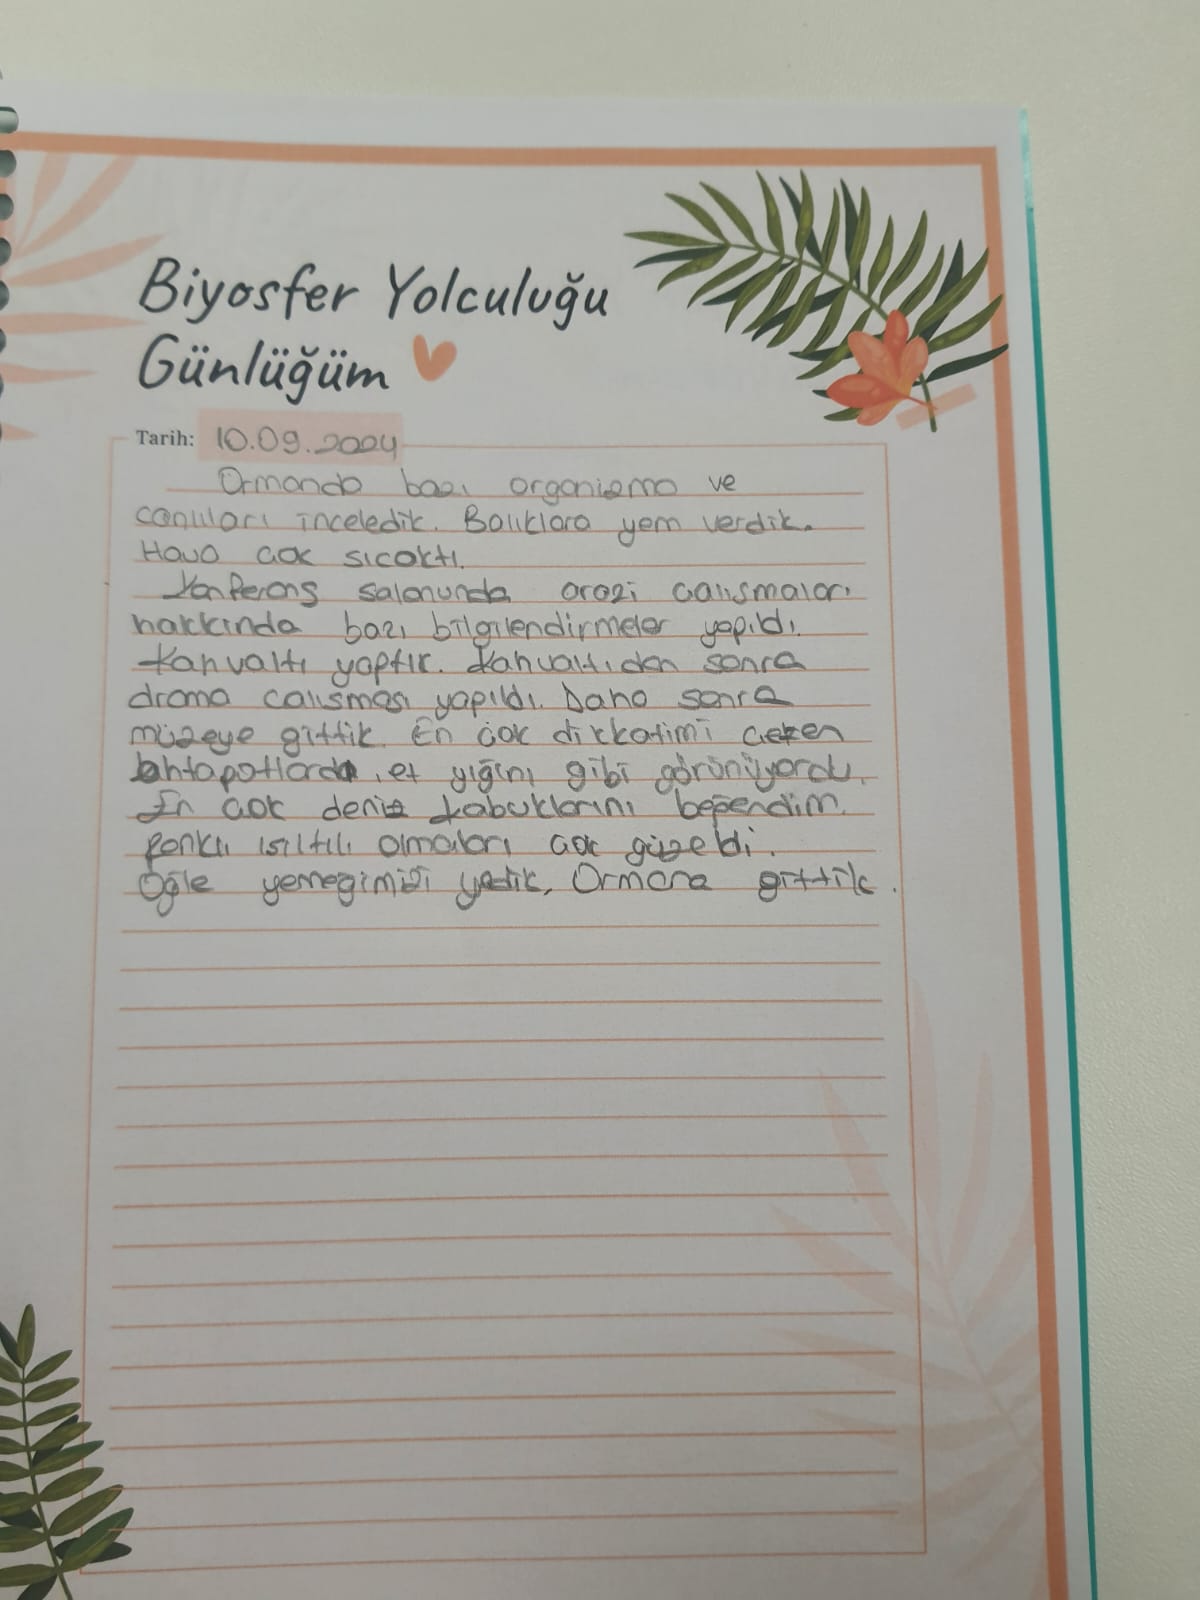 Biyosfer Yolculuğu
Günlüğüm
Tarih: 10.09.2024
Ormanda bazı organizma ve
canlıları inceledik. Balıklara yem verdik.
Hava çok sıcaktı.
Konferans salonunda arazi çalışmaları
hakkında bazı bilgilendirmeler yapıldı.
Kahvaltı yaptık. Kahvaltıdan sonra
drama çalışması yapıldı. Daha sonra
müzeye gittik. En çok dikkatimi çeken
ahtapotlardı, et yığını gibi görünüyordu.
En çok deniz kabuklarını beğendim.
Renkli ışıltılı olmaları çok güzeldi.
Öğle yemeğimizi yedik, Ormana gittik.